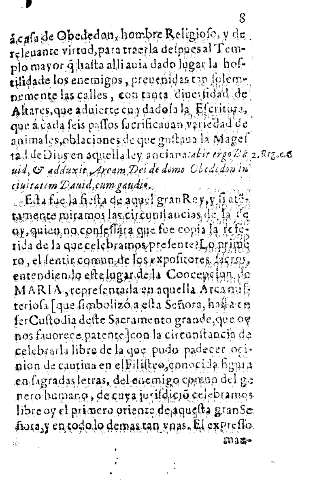 8
à casa de Obededon, hombre Religioso, y de
releuante virtud, para traerla despues al Tem-
plo mayor q̃ hasta alli auia dado lugar la hos-
tilidad e los enemigos, preuenidas tan solem-
nemente las calles, con tanta diuersidad de
Altares, que aduierte cuydadosa la Escritura,
que à cada seis passos sacrificauan variedad de
animales, oblaciones de que gustaua la Mages
tad de Dios en aquella ley anciana: abijt ergo Da
2. Reg. c. 6
uid, & adduxit Arcam Dei de domo Obededon in
ciuitatem Dauid, cum gaudio.
Esta fue la fiesta de aquel gran Rey, y si atē-
tamente miramos las circunstancias de la de
oy, quien no confessàra que fue copia la refe-
rida de la que celebramos presente? Lo prime
ro, el sentir comun de los expositores sacros,
entendiendo este lugar de la Concepcion de
MARIA, representada en aquella Arca mis-
teriosa [que simbolizò a esta Señora, hasta en
ser Custodia deste Sacramento grande, que oy
nos fauorece patente] con la circunstancia de
celebrarla libre de la que pudo padecer opi-
nion de cautiua en el Filisteo, conocida figura
en sagradas letras, del enemigo comun del ge
nero humano, de cuya jurisdiciō celebramos
libre oy el primero oriente de aquesta gran Se
ñora, y en todo lo demas tan vnas. El expresso